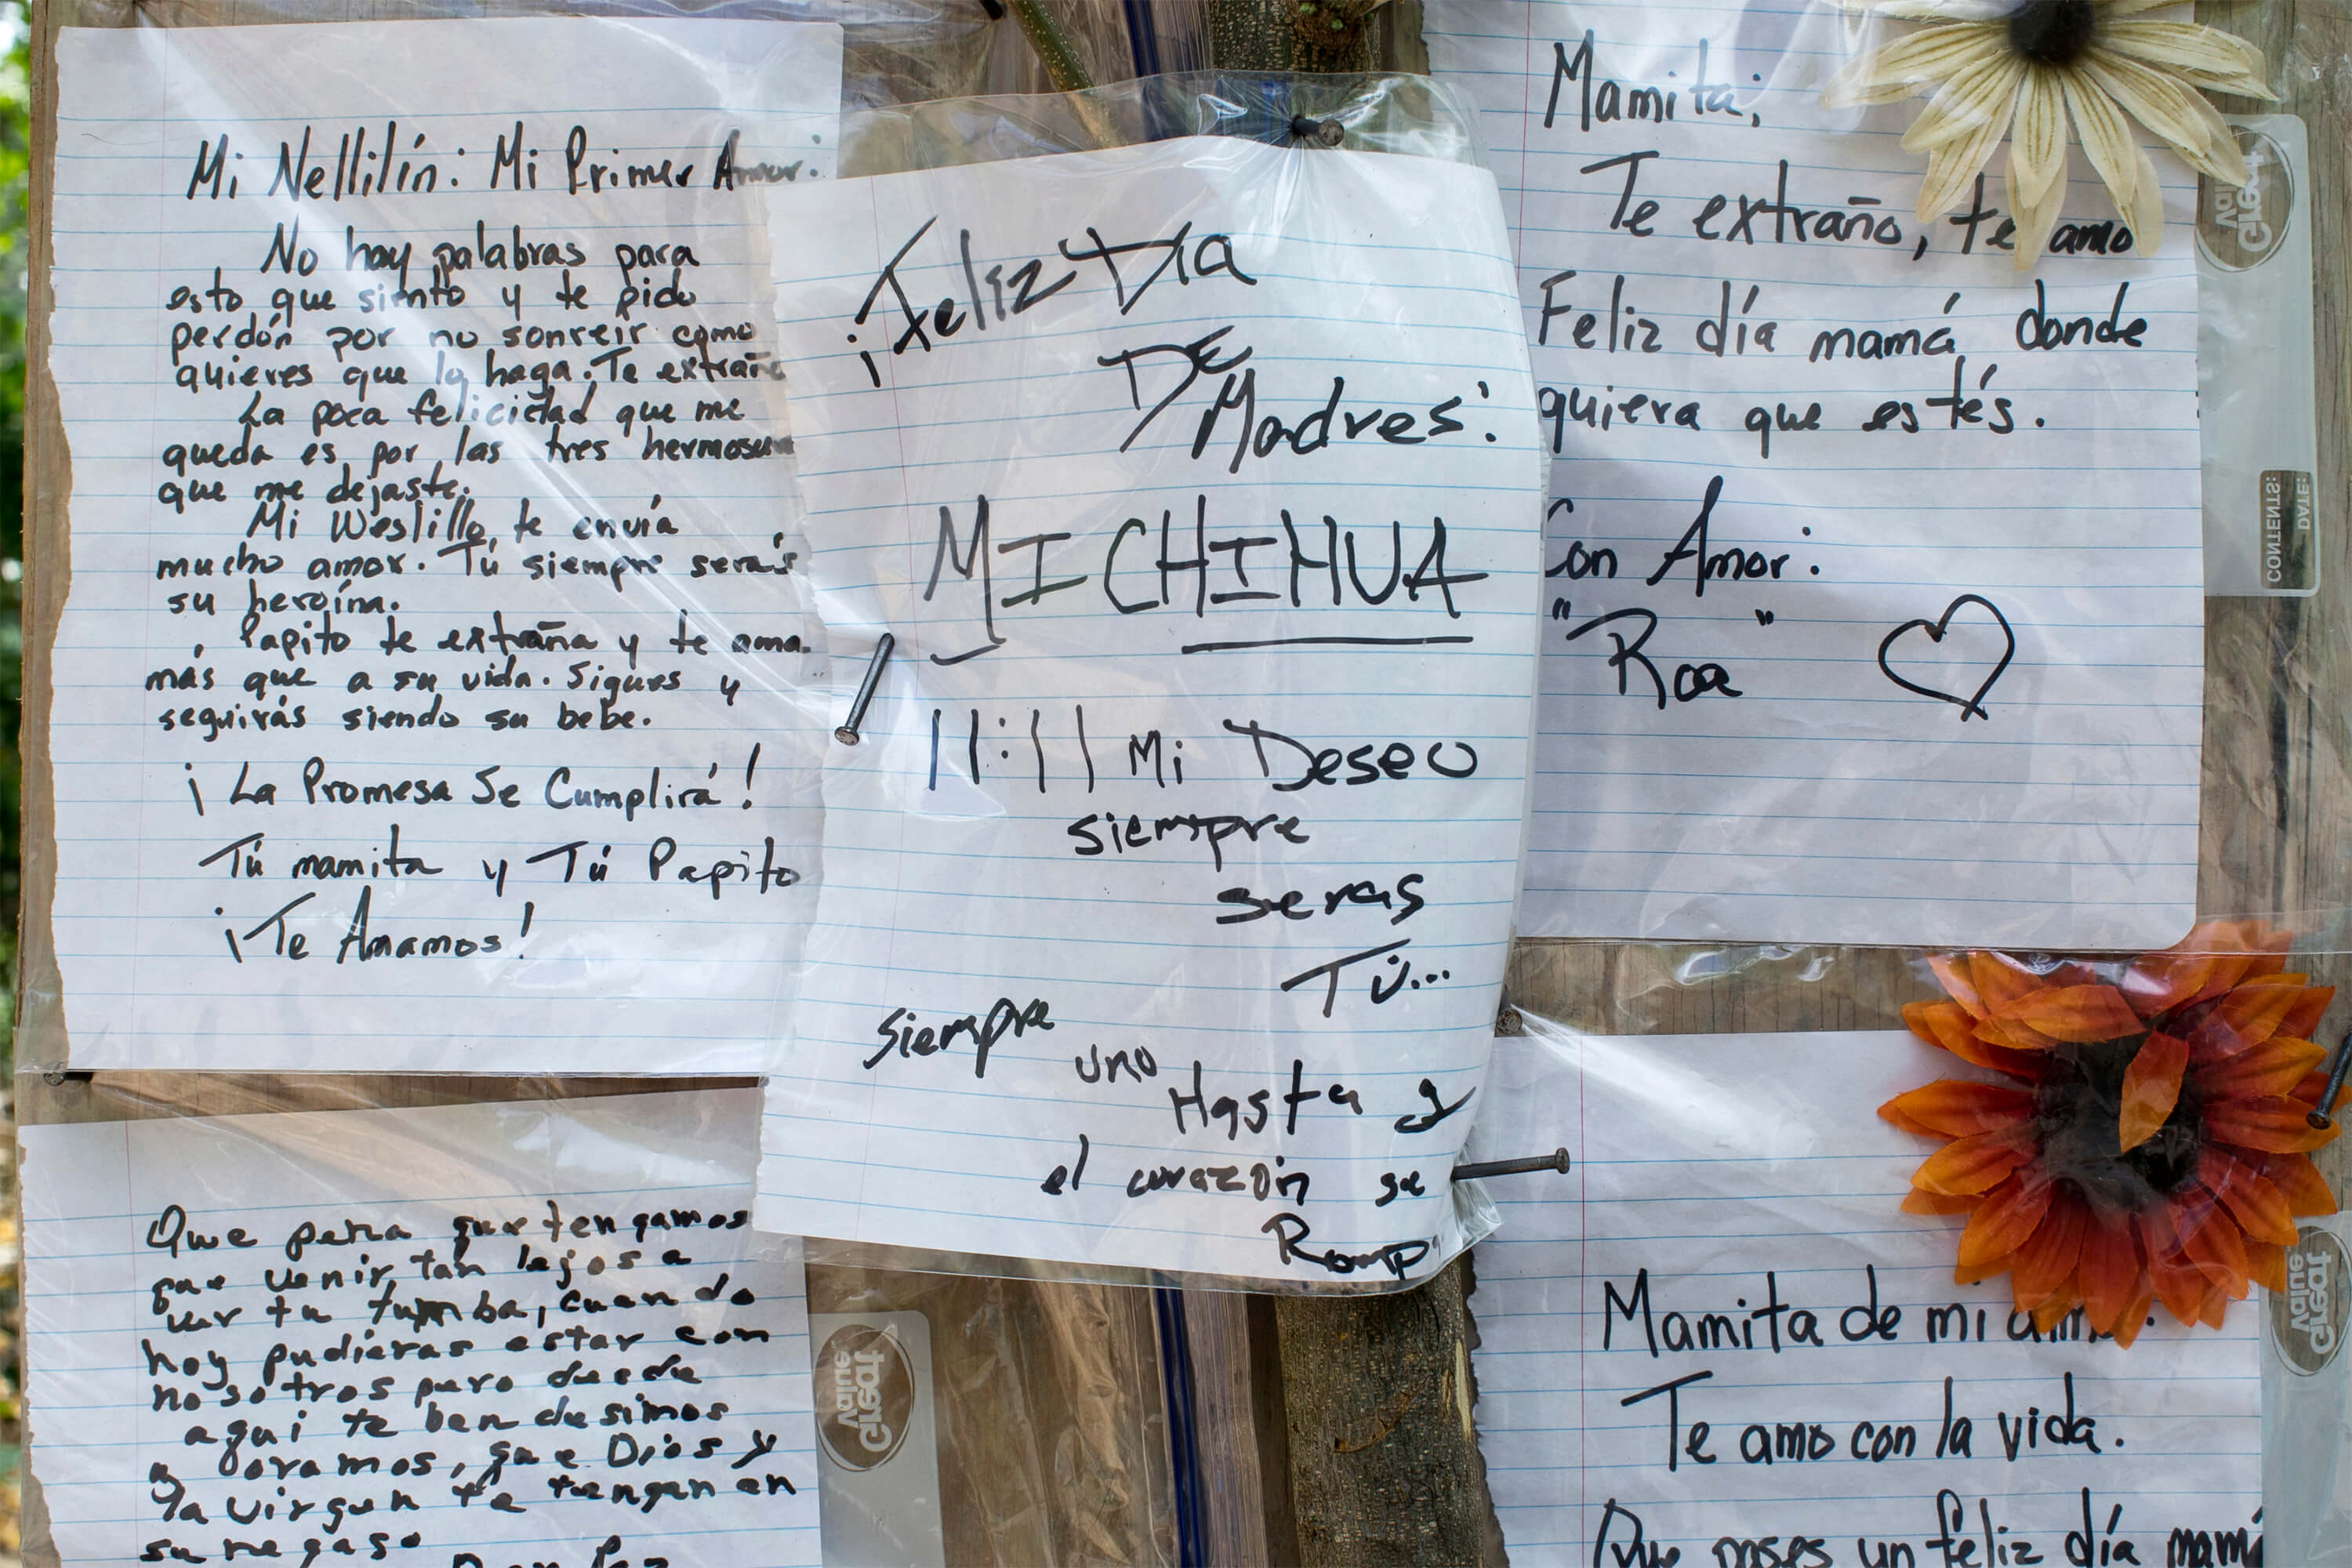 Mi Nellilín: Mi Primer Amor:
No hay palabras para
esto que siento y te pido
perdón por no sonreír como
quieres que lo haga. Te extraño
La poca felicidad que me
queda es por las tres hermosuras
que me dejaste.
Mi Weslillo, te envía
mucho amor. Tú siempre serás
su heroína.
Papito te extraña y te ama.
más que a su vida. Sigues y
seguirás siendo su bebe.
¡La Promesa Se Cumplirá!
Tú mamita y Tú Papito
¡Te Amamos!
¡Feliz Día
DE
Madres!
MI CHIHUA
11:11 Mi Deseo
siempre
seras
Tú...
siempre
uno
Hasta q
el corazón se
Romp
Mamita;
Te extraño, te amo
Feliz día mamá, donde
quiera que estés.
Con Amor:
"Roa"
Que pena que tengamos
que venir tán lejos a
ver tu tumba, cuando
hoy pudieras estar con
nosotros pero desde
aqui te ben desimos
y oramos, que Dios y
la virgen te tengan en
su regaso
Mamita de mi alma:
Te amo con la vida.
Que pases un feliz día mamá
Great Value
CONTENTS:
DATE:
Great Value
Great Value